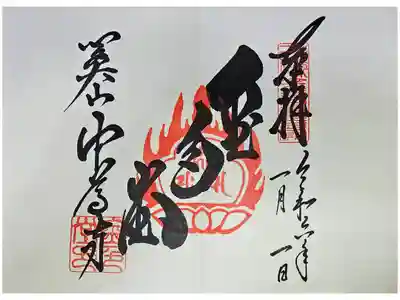 奉拝
令和六年
一月一日
金色堂
関山中尊寺